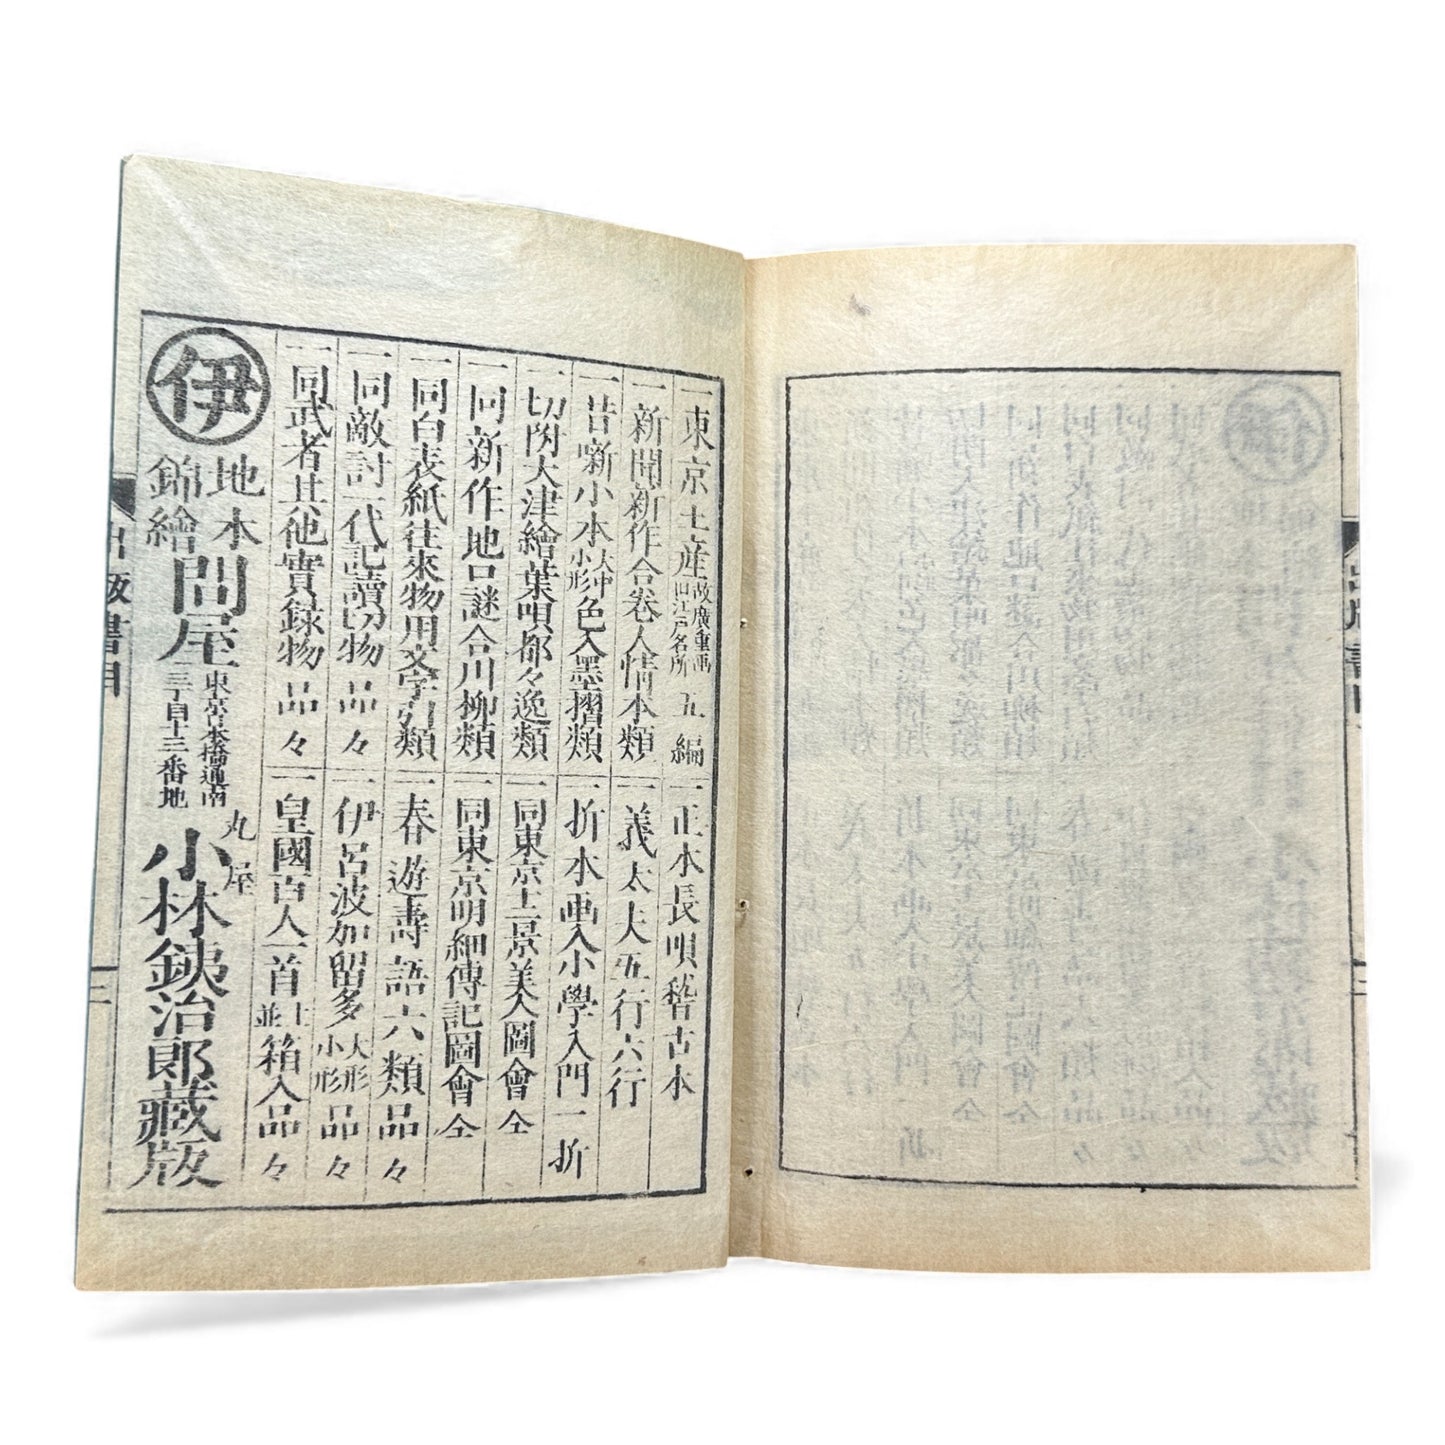 一東京土産 故廣重画 旧江戸名所 五編
一新聞新作合巻人情本類
一昔噺小本 大中小形 色入墨摺類
一切附大津繪葉唄都々逸類
一同新作地口謎合川柳類
一同白表紙往來物用文字引類
一同敵討一代記讀切物品々
一同武者其他實録物品々
一正本長唄稽古本
一義太夫五行六行
一折本画入小學入門一折
一同東京土景美人圖會全
一同東京明細傳記圖會全
一春遊壽語六類品々
一伊呂波加留多 大形 小形 品々
一皇國百人一首 上 並 箱入品々
伊
地本
錦繪
問屋
東京日本橋通南
三丁目十三番地
丸屋
小林鉄治郎藏版
出版書目
三